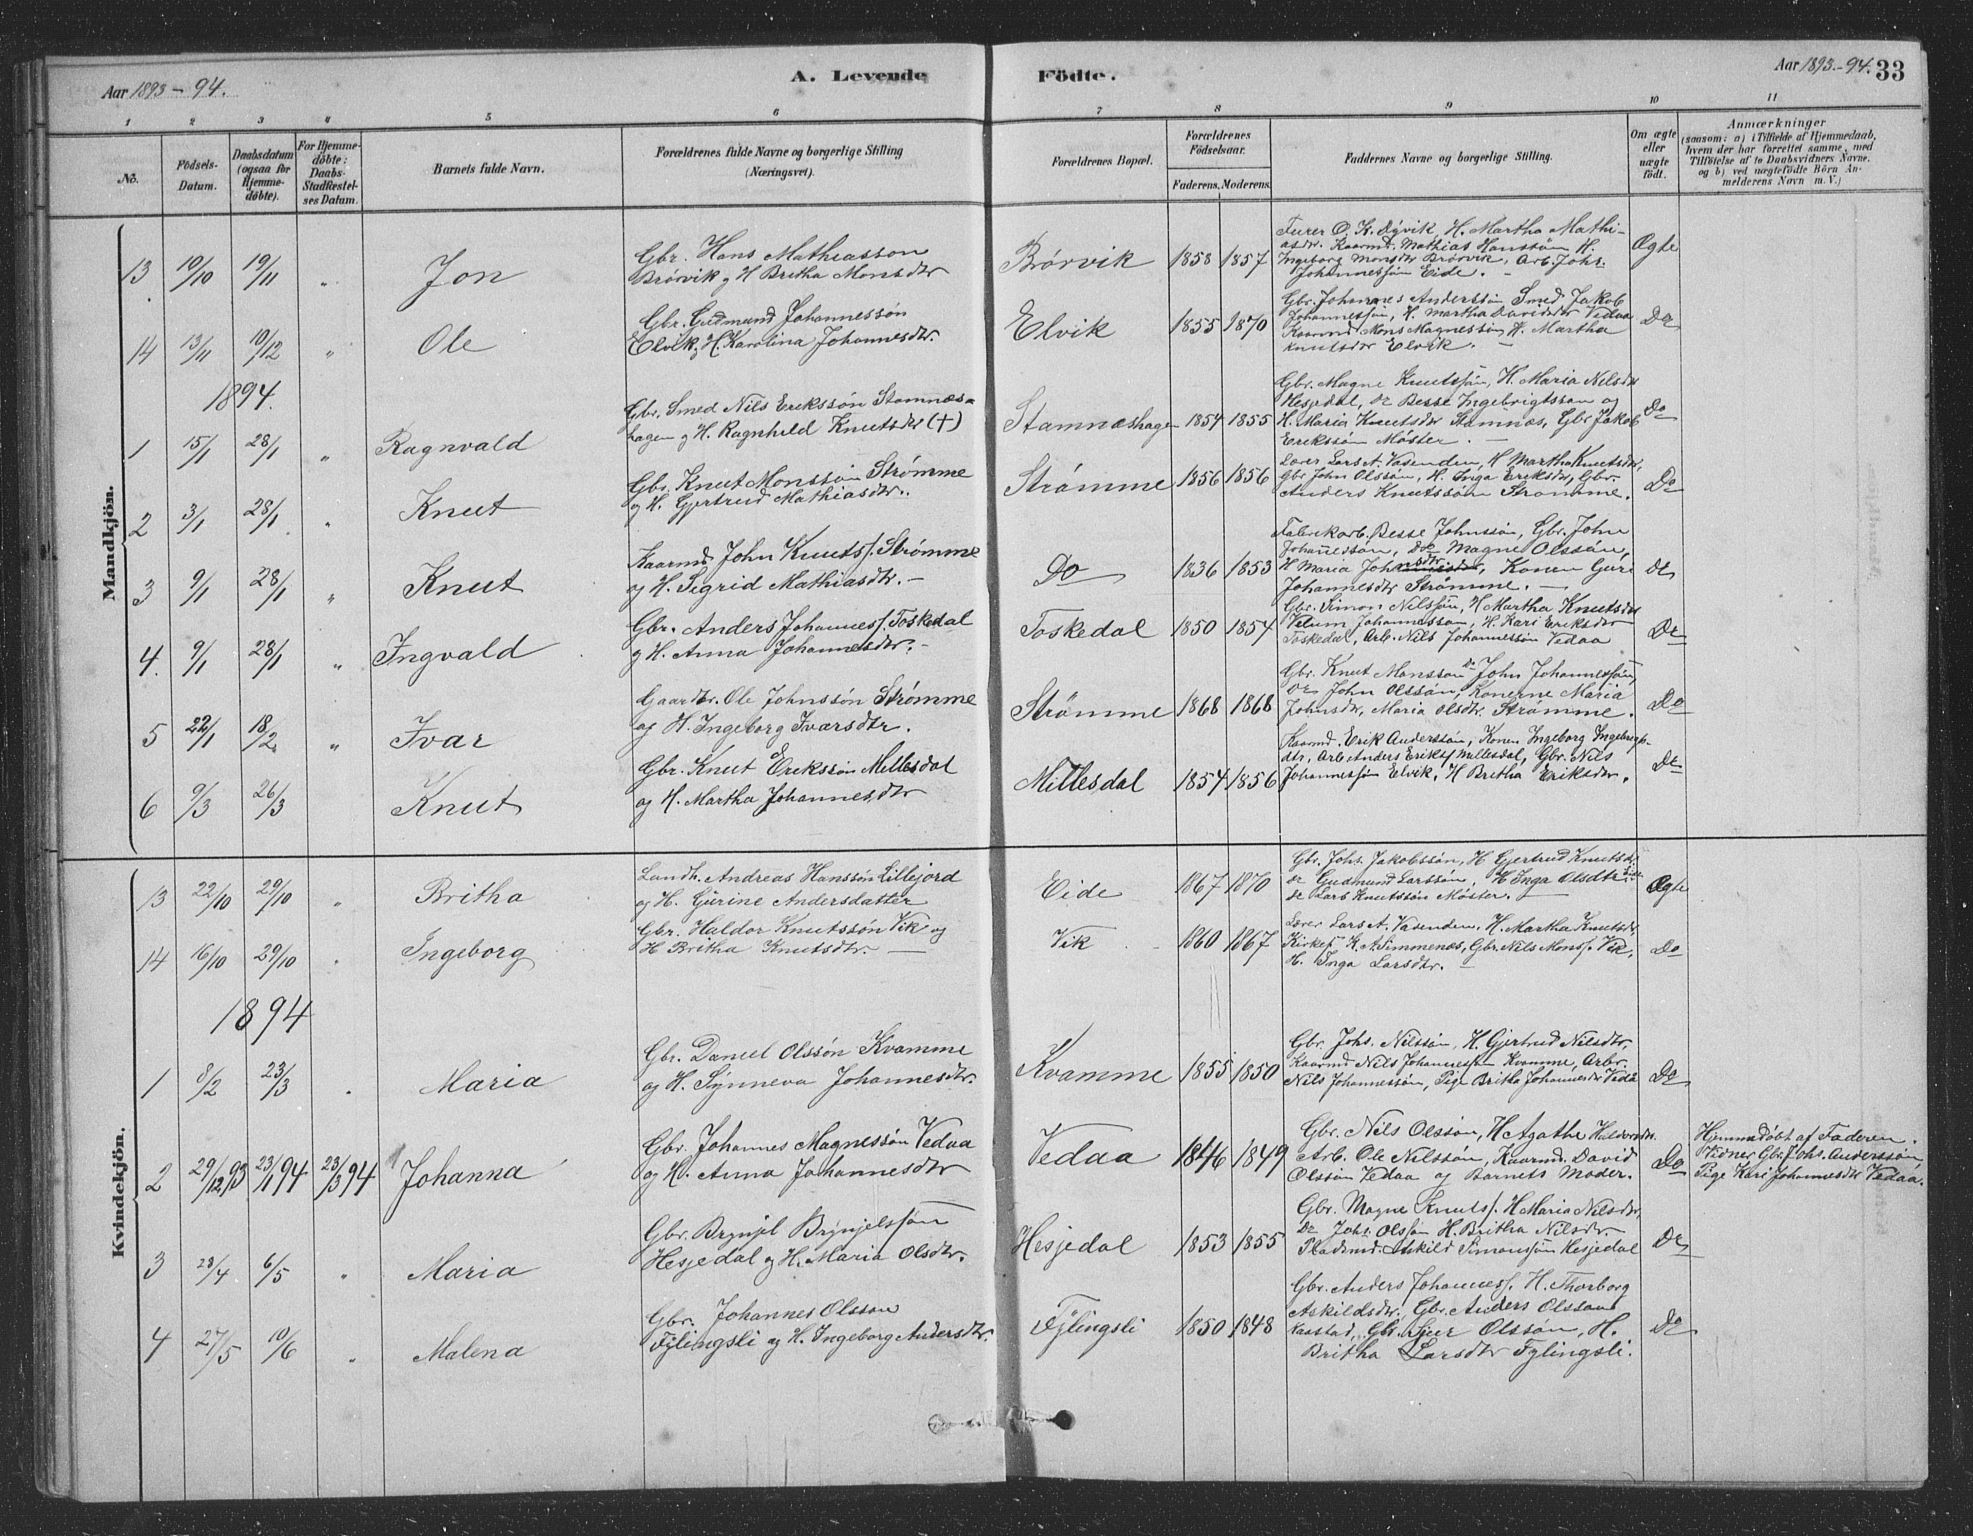 Aar 1893 – 94.
A. Levende Födte.
Aar 1893–94. 33
1 2 3 4 5 6 7 8 9 10 11
No.
Födsels-Datum.
Daabsdatum (ogsaa for Hjemme-döbte).
For Hjemme-döbte: Daabs-Stadfæstel-ses Datum.
Barnets fulde Navn.
Forældrenes fulde Navne og borgerlige Stilling
(Næringsvei).
Forældrenes Bopæl.
Forældrenes Födselsaar.
Faderens. Moderens.
Faddernes Navne og borgerlige Stilling.
Om ægte eller uægte födt.
Anmærkninger
(saasom: a) i Tilfælde af Hjemmedaab,
hvem der har forrettet samme, med
Tilföielse af to Daabsvidners Navne.
og b) ved uægtefödte Börn An-
melderens Navn m. V.)
Mandkjön.
13 19/10 19/11 " Jon
Gbr. Hans Mathiasson
Brörvik og H Britha Monsdtr
Brörvik 1858 1857
H. Martha Mathi-
asdr. Kaarmd. Mathias Hanssön H.
Ingeborg Monsdtr Brörvik, Arb. Johs.
Johannessön Eide. –
Ægte
14 13/11 10/12 " Ole
Gbr. Gudmund Johannessön
Elvik og H. Karolina Johannesdtr.
Elvik 1855 1870
Gbr. Johannes Anderssön Smed Jakob
Johannessön, H. Martha Davidsdtr Vedaa
Kaarmd. Mons Magnessön H. Martha
Knutsdtr Elvik. –
Do
1894.
1 15/1 28/1 " Ragnvald
Gbr. Smed Nils Erikssön Stamnæs-
hagen og H. Ragnhild Knutsdtr (+)
Stamnæshagen 1854 1855
Gbr. Magne Knutssön, H. Maria Nilsdtr
Hesjedal, Do Besse Ingebrigtsson og
H. Maria Knutsdtr Stamnæs, Gbr Jakob
Erikssön Möster. –
Do
2 3/1 28/1 " Knut
Gbr. Knut Monssön Strömme
og H. Gjertrud Mathiasdtr.
Strömme 1856 1856
Lærer Lars A. Vasenden, H Martha Knutsdtr,
Gbr John Olssön, H. Inga Eriksdtr, Gbr.
Anders Knutssön Strömme.
Do
3 9/1 28/1 " Knut
Kaarmd John Knuts. Strömme
og H. Sigrid Mathiasdtr. –
Do 1836 1853
Fabrikarb. Besse Johnssön, Gbr. John
Johannessön, Do Magne Olssön,
H Maria Johnsdtr, Konen Guri
Johannesdtr Strömme. –
Do
4. 9/1 28/1 " Ingvald
Gbr. Anders Johanness. Toskedal
og H. Anna Johannesdtr. –
Toskedal 1850 1854
Gbr. Simon Nilssön, H Martha Knutsdtr
Johannesson, H. Kari Eriksdtr
Toskedal, Arb. Nils Johannessön Vedaa
Do
5 22/1 18/2 " Ivar
Gaardbr. Ole Johnssön Strömme
og H. Ingeborg Ivarsdtr.
Strömme 1868 1868
Gbr. Knut Monsson Do John Johannessön
Do John Olssön, Konerne Maria
Johnsdtr, Maria Olsdtr. Strömme.
Do
6 9/3 26/3 Knut
Gbr. Knut Erikssön Millesdal
og H. Martha Johannesdtr
Millesdal 1854 1856
Kaarmd. Erik Anderssön, Konen Ingeborg Ingebrigts-
dtr, Arb Anders Eriks. Millesdal, Gbr. Nils
Johannessön Elvik, H Britha Eriksdtr.
Do
Kvindekjön.
13 22/10 29/10 " Britha
Landh. Andreas Hanssön Lillejord
og H. Gurine Andersdatter
Eide 1867 1870
Gbr. Johs. Jakobssön, H Gjertrud Knutsdtr
Do Gudmund Larssön, H Inga Olsdtr
Do Lars Knutssön Möster. –
Ægte
14 16/10 29/10 " Ingeborg
Gbr. Haldor Knutssön Vik og
H Britha Knutsdtr. –
Vik 1860 1867
Lærer Lars A. Vasenden, H. Martha Knutsdtr
Kirkes. K. A. Simmenæs, Gbr. Nils Mons. Vik,
H. Inga Larsdtr. –
Do
1894
1 8/2 23/3 " Maria
Gbr. Daniel Olssön Kvamme
og H. Synneva Johannesdtr.
Kvamme 1855 1850
Gbr. Johs. Nilssön, H. Gjertrud Nilsdtr,
Kaarmd Nils Johannessön Kvamme, Arbr.
Nils Johannessön, Pige Britha Johannesdtr Vedaa
Do
2 29/12 93 23/1 94 23/3 94 Johanna
Gbr. Johannes Magnessön Vedaa
og H. Anna Johannesdtr
Vedaa 1846 1849
Gbr. Nils Olssön, H Agathe Haldorsdtr.
Arb. Ole Nilssön, Kaarmd. David
Olssön Vedaa og Barnets Moder.
Do
Hjemmedöbt af Faderen.
Vidner Gbr. Johs. Anderssön
Pige Kari Johannesdtr Vedaa.
3 28/4 6/5 " Maria
Gbr. Brynjel Brynjelssön
Hesjedal og H. Maria Olsdtr.
Hesjedal 1853 1855
Gbr. Magne Knuts. H Maria Nilsdtr,
Do Johs. Olssön H. Britha Nilsdtr.
Pladsmd. Askild Simonssön Hesjedal
Do
4 27/5 10/6 " Malena
Gbr. Johannes Olsson
Fylingsli og H. Ingeborg Andersdtr.
Fylingsli 1850 1848
Gbr. Anders Johanness. H. Thorborg
Askildsdtr. Gbr. Anders Olsson
Kaastad, Gbr. Olssön, H.
Britha Larsdtr Fylingsli.
Do